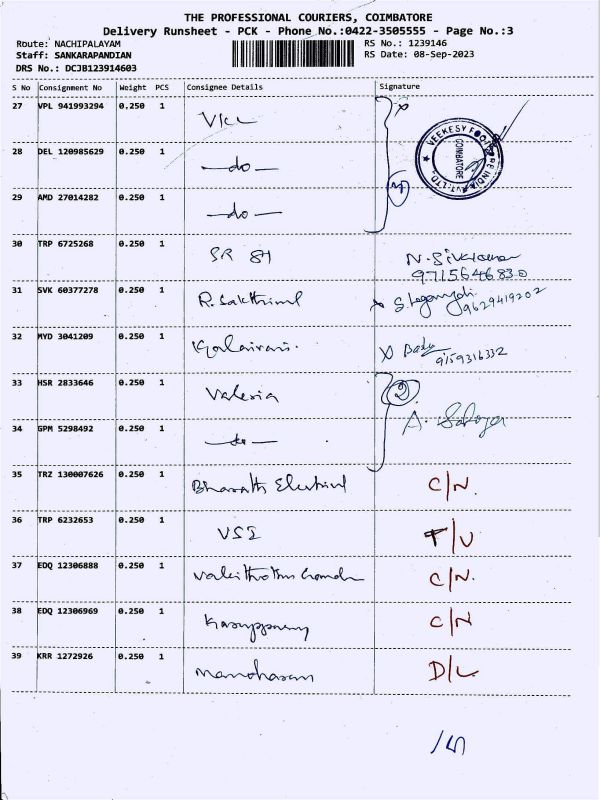 THE PROFESSIONAL COURIERS, COIMBATORE
Delivery Runsheet - PCK - Phone No.:0422-3505555 - Page No.:3
Route: NACHIPALAYAM
RS No.: 1239146
Staff: SANKARAPANDIAN
RS Date: 08-Sep-2023
DRS No.: DCJB123914603
S No Consignment No Weight PCS Consignee Details Signature
27 VPL 941993294 0.250 1
VEEKESY INDIA PVT. LTD. COIMBATORE
28 DEL 120985629 0.250 1 -do-
29 AMD 27014282 0.250 1 -do-
30 TRP 6725268 0.250 1 SR
9715646830
31 SVK 60377278 0.250 1 R. Sakthivel
9629419202
32 MYD 3041209 0.250 1
9159316332
33 HSR 2833646 0.250 1 Valeria 2
34 GPM 5298492 0.250 1 -do- A.
35 TRZ 130007626 0.250 1 Bharath C/N.
36 TRP 6232653 0.250 1 VSI
37 EDQ 12306888 0.250 1 C/N.
38 EDQ 12306969 0.250 1 C/N
39 KRR 1272926 0.250 1 Manoharan D/L